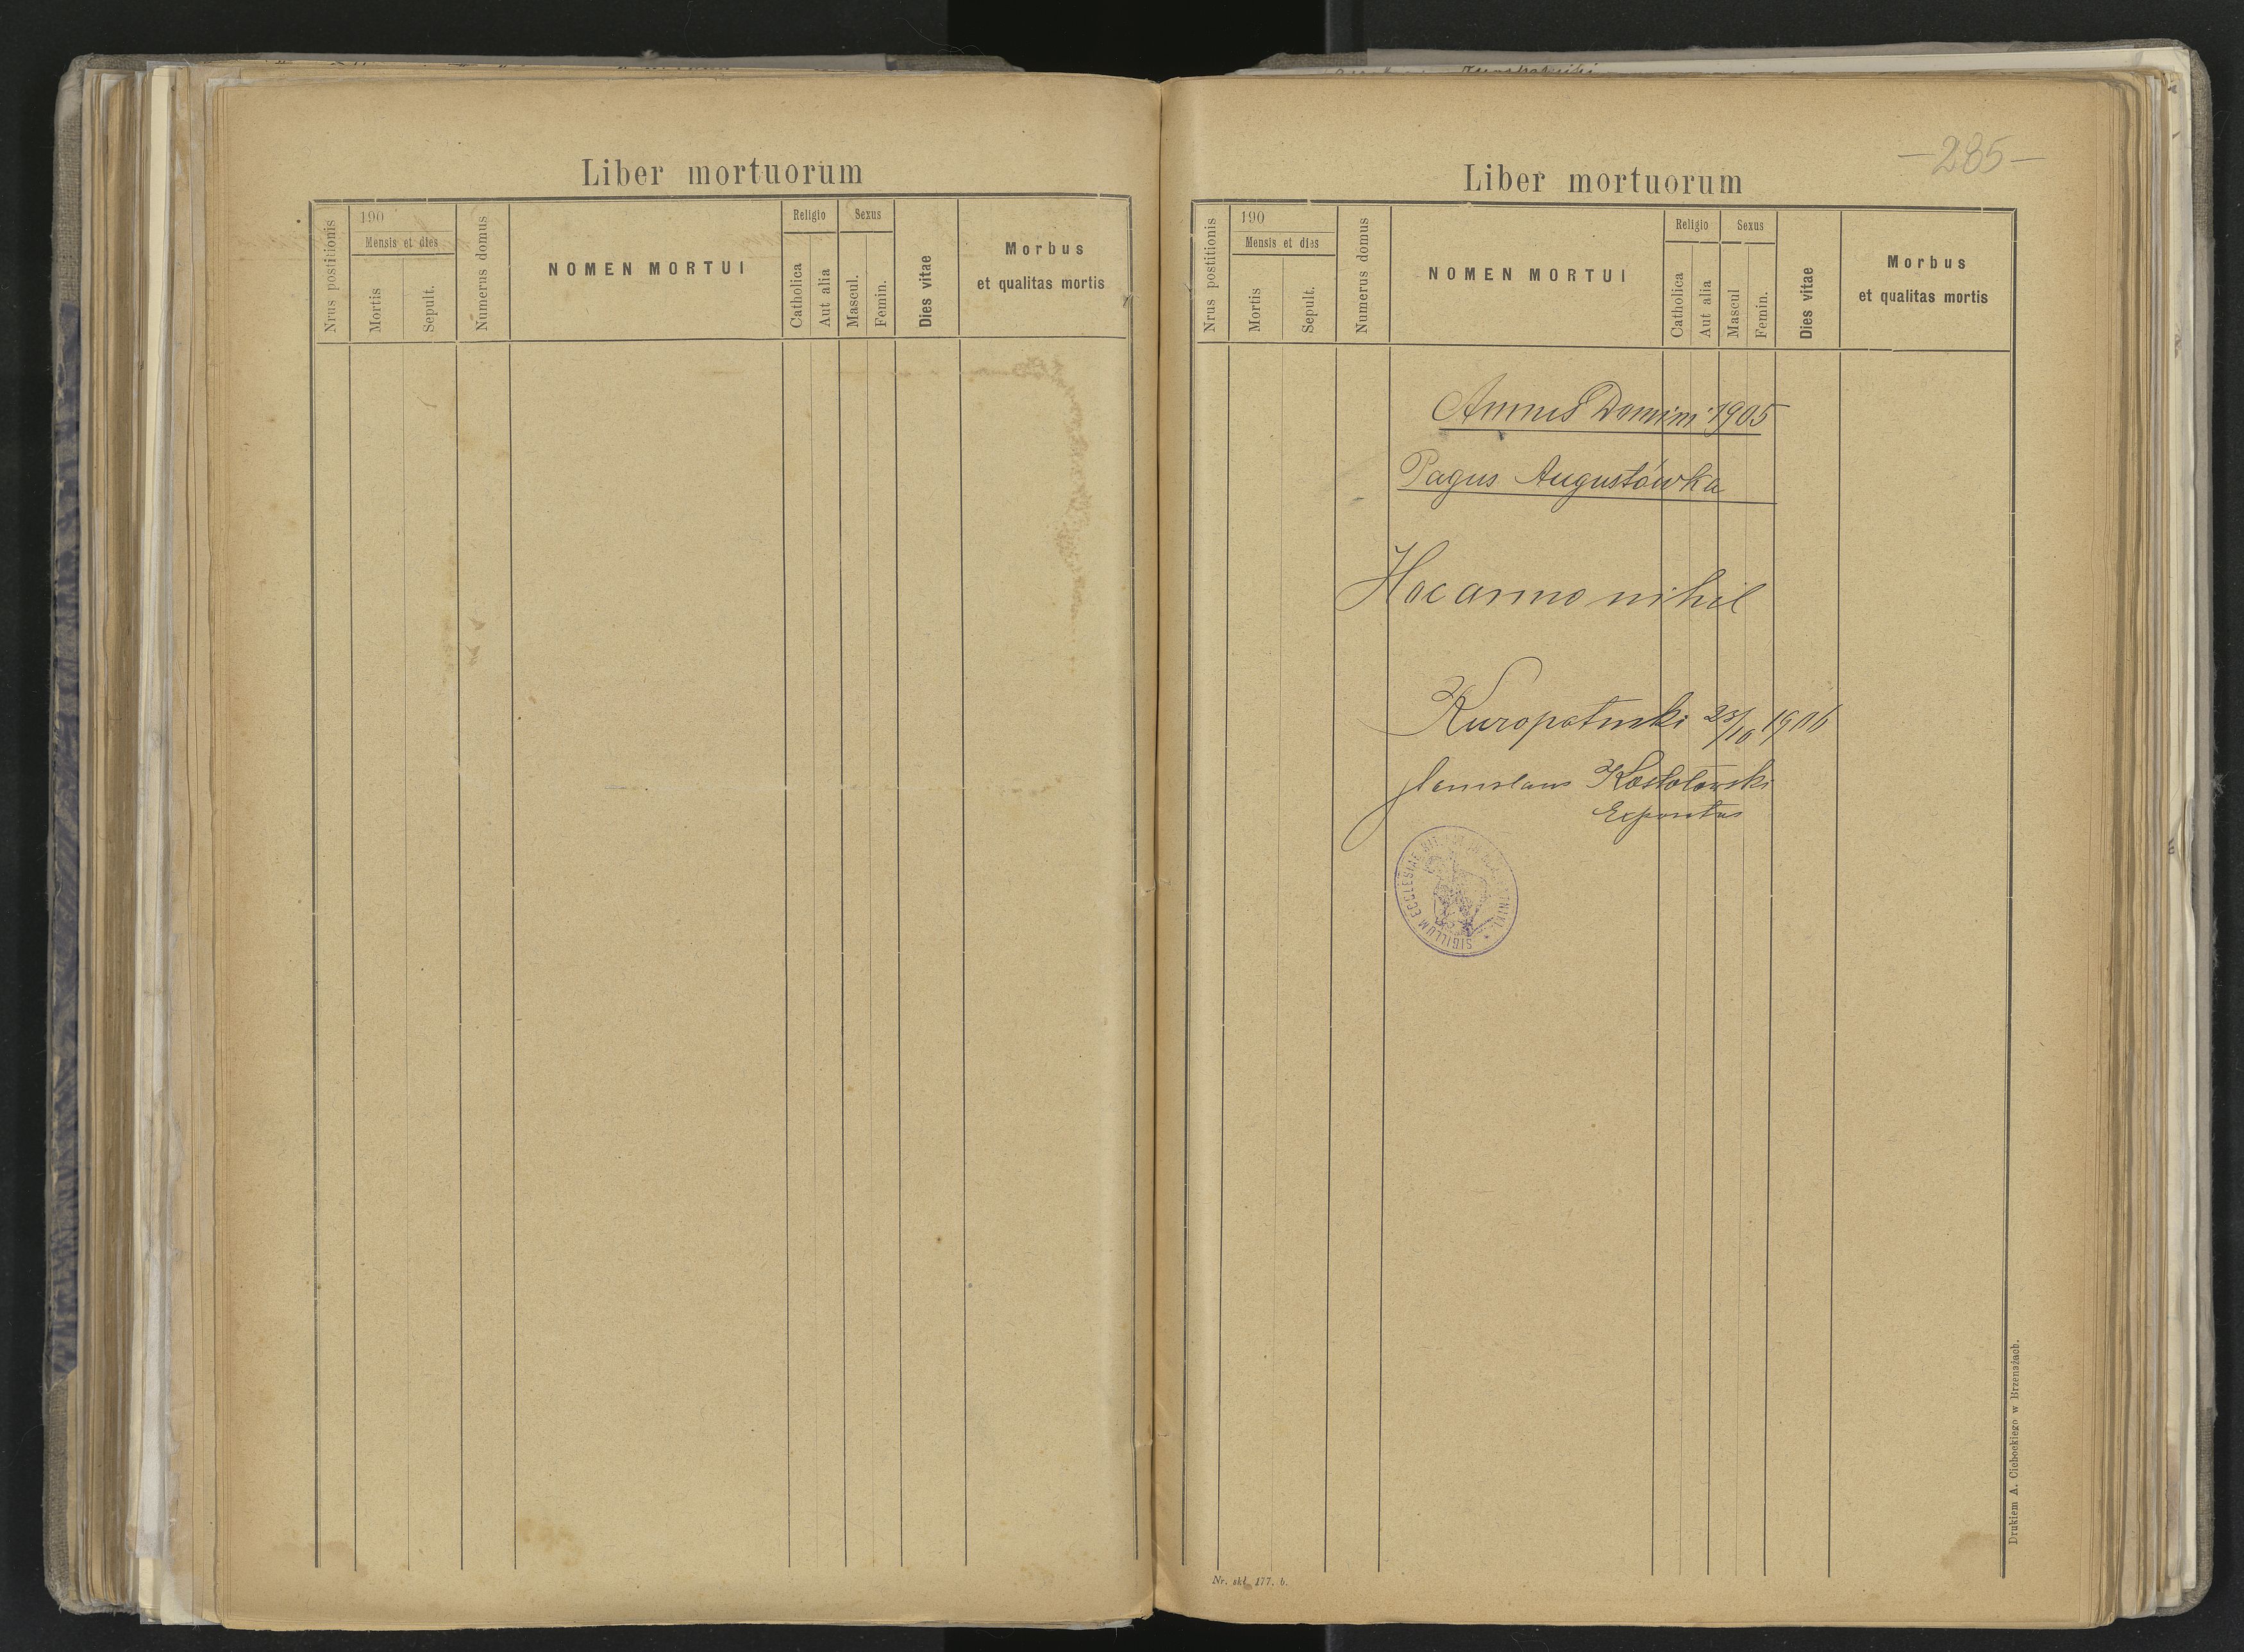 Liber mortuorum
Nrus postitionis
190
Mensis et dies
Mortis
Sepult.
Numerus domus
NOMEN MORTUI
Religio
Catholica
Aut alia
Sexus
Mascul.
Femin.
Dies vitae
Morbus
et qualitas mortis
—285—
Liber mortuorum
Nrus postitionis
190
Mensis et dies
Mortis
Sepult.
Numerus domus
NOMEN MORTUI
Religio
Catholica
Aut alia
Sexus
Mascul
Femin.
Dies vitae
Morbus
et qualitas mortis
Annus Domini 1905
Pagus Augustówka
Hoc anno nihil
Kuropatniki 1906
Stanislaus
Expositus
SIGILLUM ECCLESIAE
Drukiem A. Cichockiego w Brzeżanach.
Nr. skł. 177. b.